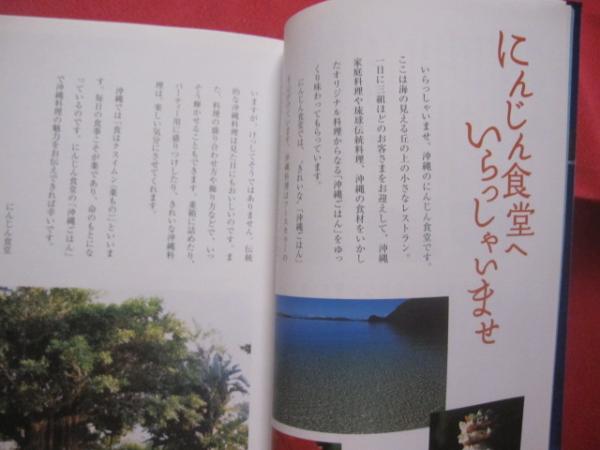 にんじん食堂へ
いらっしゃいませ
いらっしゃいませ、沖縄のにんじん食堂です。
ここは海の見える丘の上の小さなレストラン。
一日に三組ほどのお客さまをお迎えして、沖縄
家庭料理や琉球伝統料理、沖縄の食材をいかし
たオリジナル料理からなる「沖縄ごはん」をゆっ
くり味わってもらっています。
にんじん食堂では、〝きれいな〟「沖縄ごはん」
いますが、けっしてそうではありません。伝統
的な沖縄料理は見た目にもおいしいのです。ま
た、料理の盛り合わせ方や飾り方などで、いっ
そう輝かせることもできます。重箱に詰めたり、
パーティー用に盛りつけしたり、きれいな沖縄料
理は、楽しい気分にさせてくれます。
沖縄では「食はクスイムン(薬もの)」といいま
す。毎日の食事こそが薬であり、命のもとにな
っているのです。にんじん食堂の「沖縄ごはん」
で沖縄料理の魅力をお伝えできれば幸いです。
にんじん食堂